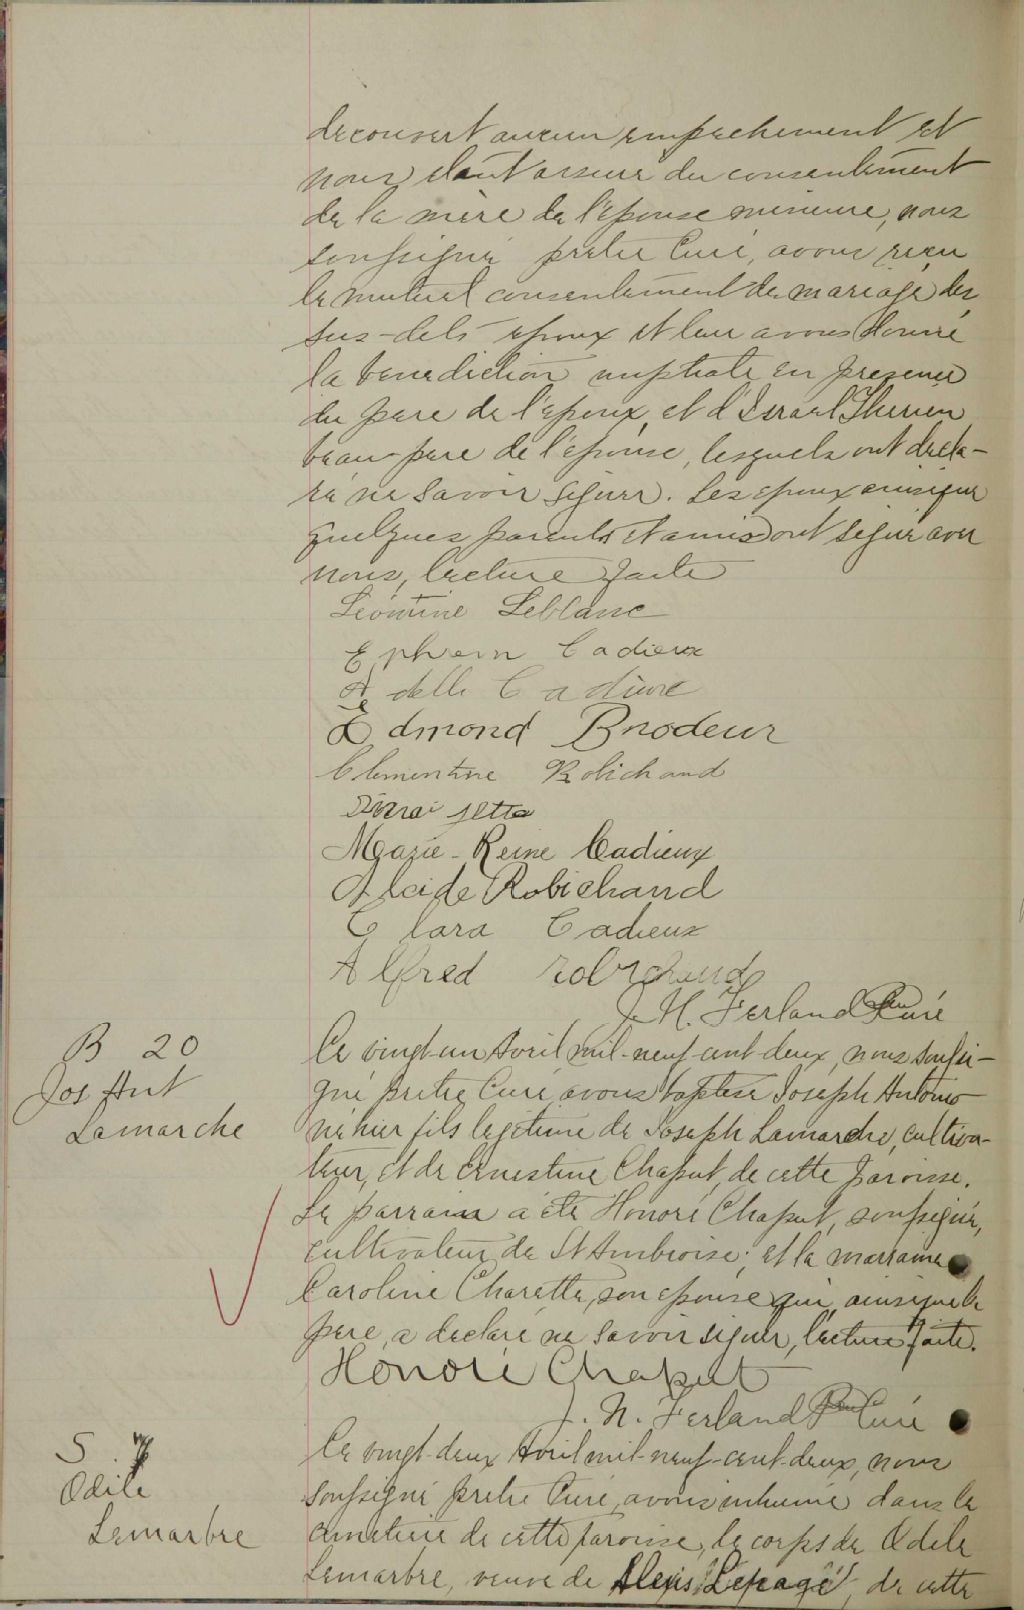 decouvert aucun empechement et
nous étant assuré du consentement
de la mère de l'épouse mineure, nous
soussigné prêtre Curé, avons reçu
le mutuel consentement de mariage des
sus-dits époux et leur avons donné
la bénédiction nuptiale en présence
du père de l'époux, et d'Israel Therrien
beau-père de l'épouse, lesquels ont décla-
ré ne savoir signer. Les époux ainsi que
quelques parents et amis ont signé avec
nous, lecture faite
Léontine Leblanc
Ephrem Cadieux
Adelle Cadieux
Edmond Brodeur
Clementine Robichaud
jetté
Marie-Reine Cadieux
Alcide Robichaud
Clara Cadieux
Alfred Robichaud
J. N. Ferland Ptre Curé
B 20
Jos Ant
Lamarche
Ce vingt-un Avril mil-neuf-cent-deux, nous soussi-
gné prêtre Curé avons baptisé Joseph Antonio
né hier fils légitime de Joseph Lamarche, cultiva-
teur, et de Ernestine Chaput, de cette paroisse.
Le parrain a été Honoré Chaput, soussigné,
cultivateur de St Ambroise; et la marraine
Caroline Charette, son épouse qui, ainsi que le
père, a déclaré ne savoir signer, lecture faite.
Honoré Chaput
J. N. Ferland Ptre Curé
S. 7
Odile
Lemarbre
Ce vingt-deux Avril mil-neuf-cent-deux, nous
soussigné prêtre Curé, avons inhumé dans le
cimetière de cette paroisse, le corps de Odile
Lemarbre, veuve de Alexis Lepage, de cette